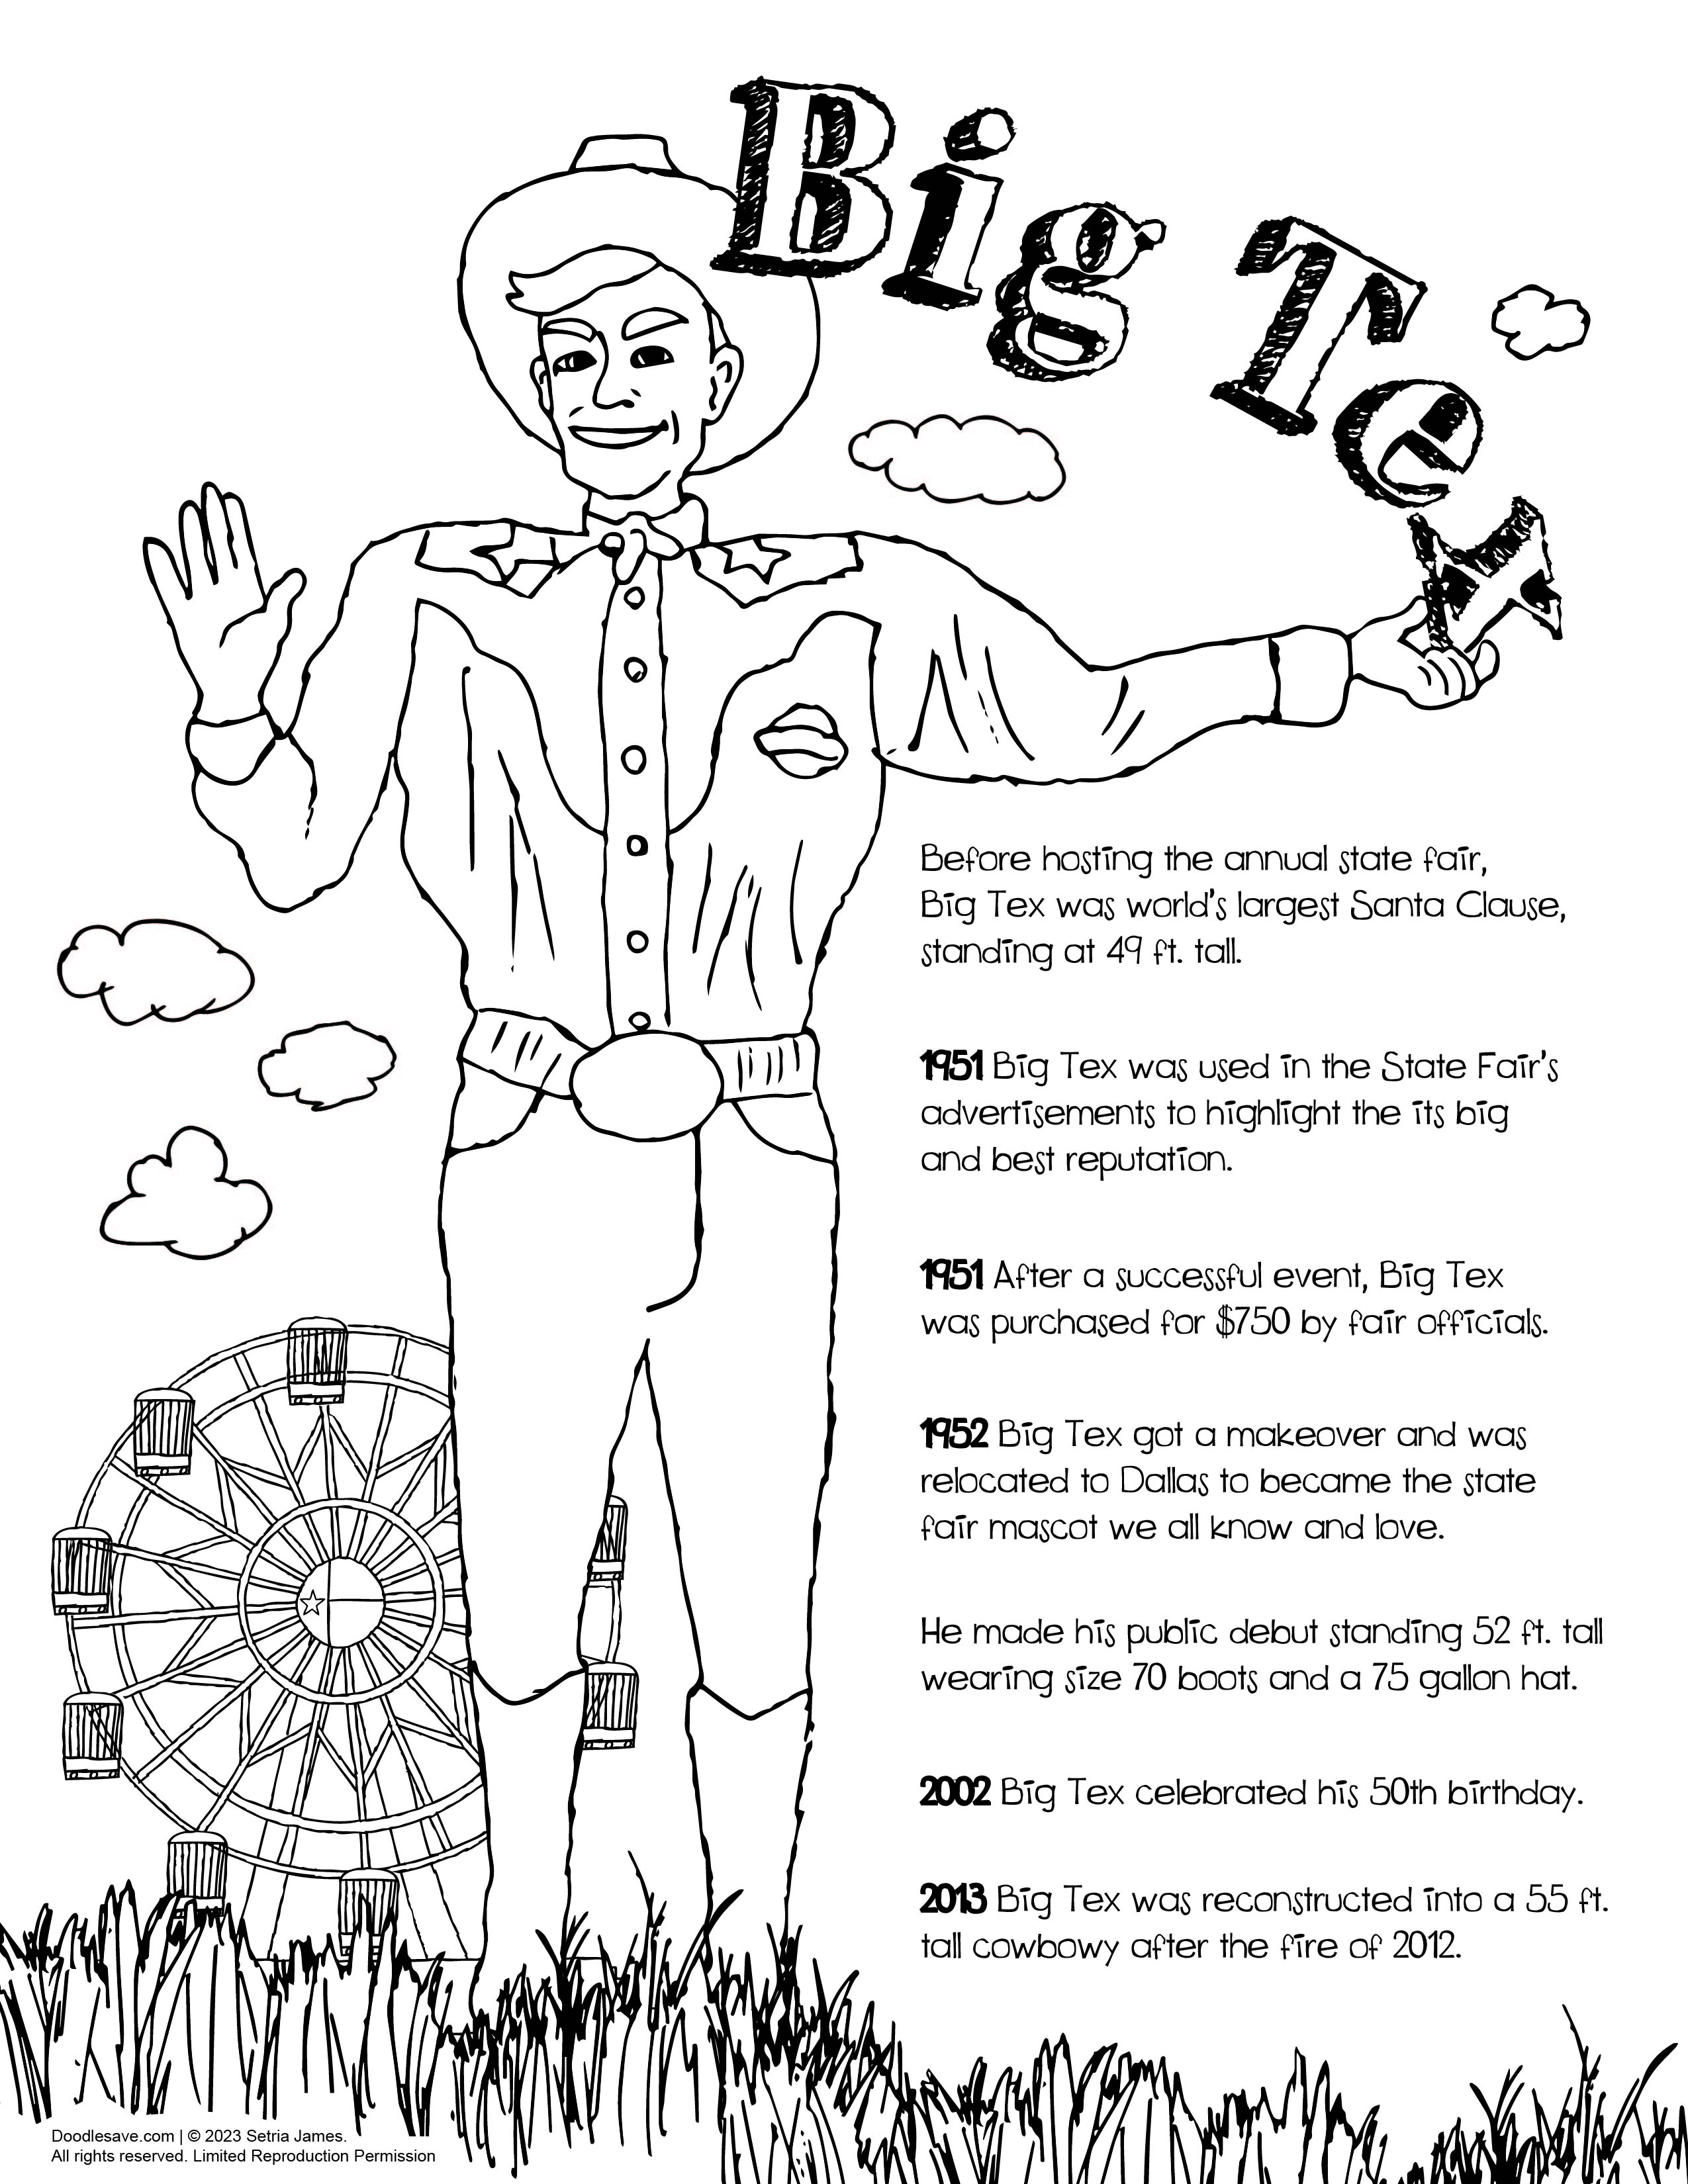 Big Tex
Before hosting the annual state fair,
Big Tex was world's largest Santa Clause,
standing at 49 ft. tall.
1951 Big Tex was used in the State Fair's
advertisements to highlight the its big
and best reputation.
1951 After a successful event, Big Tex
was purchased for $750 by fair officials.
1952 Big Tex got a makeover and was
relocated to Dallas to became the state
fair mascot we all know and love.
He made his public debut standing 52 ft. tall
wearing size 70 boots and a 75 gallon hat.
2002 Big Tex celebrated his 50th birthday.
2013 Big Tex was reconstructed into a 55 ft.
tall cowbowy after the fire of 2012.
Doodlesave.com | © 2023 Setria James.
All rights reserved. Limited Reproduction Permission